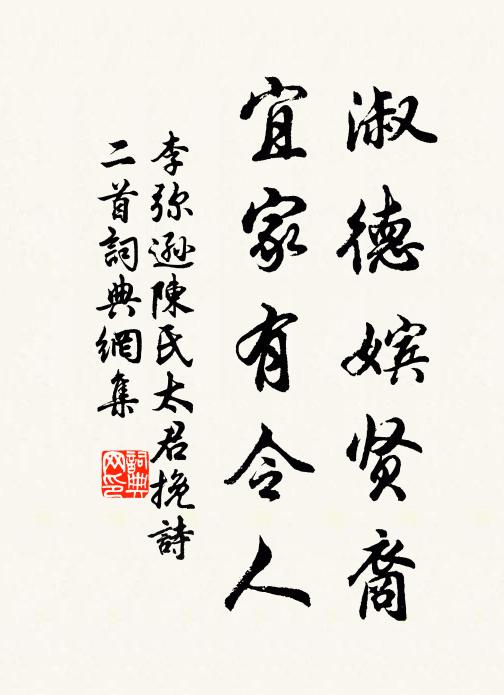 淑德嫔贤裔
宜家有令人
李弥逊陳氏太君挽詩
二首詞典網集
詞典网印